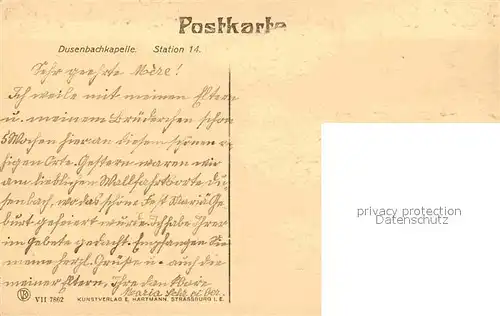 Postkarte
Dusenbachkapelle. Station 14.
Sehr geehrte Mère!
Ich weile mit meinen Eltern
u. meinem Brüderchen schon
5 Wochen hier an diesem schönen ru-
higen Orte. Gestern waren wir
am lieblichen Wallfahrtsorte Du-
senbach, wo das schöne Fest Mariä Ge-
burt gefeiert wurde. Ich habe Ihrer
im Gebete gedacht. Empfangen Sie
meine herzl. Grüße u. auch die
meiner Eltern, ihre dankbare
Maria
VII 7862 KUNSTVERLAG E. HARTMANN, STRASSBURG I. E.
privacy protection
Datenschutz